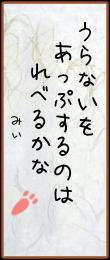 うらないを
あっぷするのは
れべるかな
みい